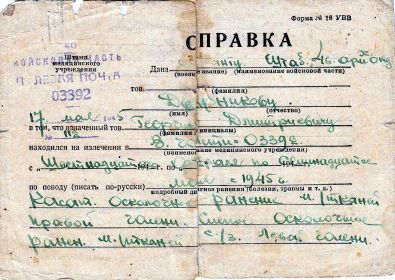 Форма № 16 УВВ
СПРАВКА
КО
Штамп
медицинского
учреждения
ВОЙСКОВАЯ ЧАСТЬ
ПОЛЕВАЯ ПОЧТА
03392
Дана
(воинское звание) (наименование войсковой части)
тов.
(фамилия)
17 мая 1945
Георгию Дмитриевичу
(имя) (отчество)
в том, что означенный тов.
(фамилия и инициалы)
находился на излечении в
03392
(наименование медицинского учреждения)
с „Шестнадцатого по Семнадцатое
мая 1945 г.
по поводу (писать по-русски)
подробный диагноз ранения (болезни, травмы и т. п.)
Касат. Осколочное ранение м/тканей
правой голени. Слепое Осколочное
ранен. м/тканей с/з левой голени.